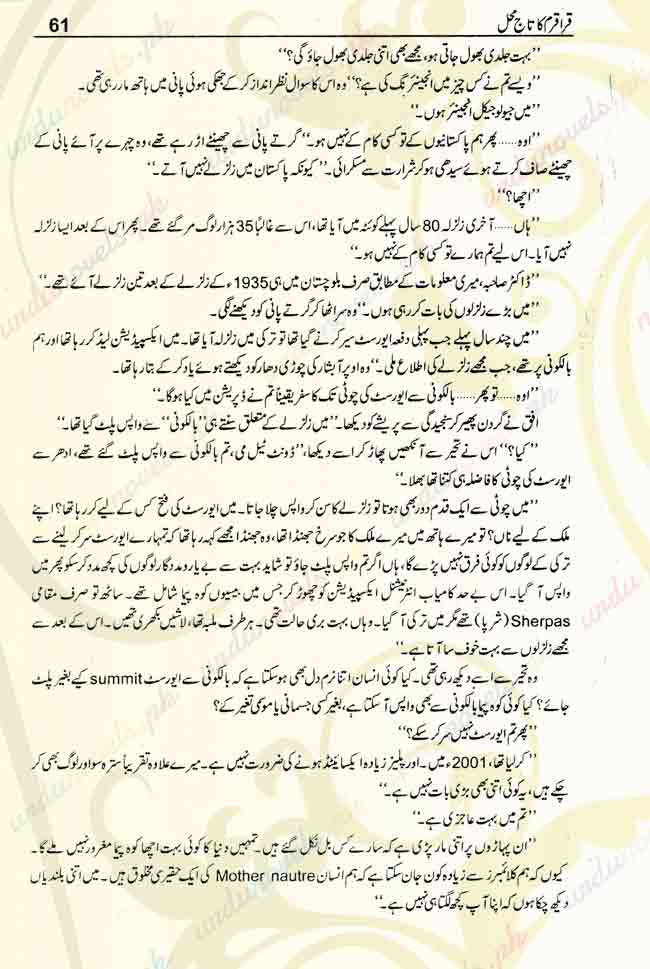 قراقرم کا تاج محل 61
’’بہت جلدی بھول جاتی ہو، مجھے بھی اتنی جلدی بھول جاؤ گی؟‘‘
’’ویسے تم نے کس چیز میں انجینئرنگ کی ہے؟‘‘ وہ اس کا سوال نظر انداز کر کے جھکی ہوئی پانی میں ہاتھ مار رہی تھی۔
’’میں جیولوجیکل انجینئر ہوں۔‘‘
’’اوہ......پھر ہم پاکستانیوں کے تو کسی کام کے نہیں ہو۔‘‘ گرتے پانی سے چھینٹے اڑ رہے تھے، وہ چہرے پر آئے پانی کے
چھینٹے صاف کرتے ہوئے سیدھی ہو کر شرارت سے مسکرائی۔ ’’کیونکہ پاکستان میں زلزلے نہیں آتے۔‘‘
’’اچھا؟‘‘
’’ہاں......آخری زلزلہ 80 سال پہلے کوئٹہ میں آیا تھا، اس سے غالباً 35 ہزار لوگ مر گئے تھے۔ پھر اس کے بعد ایسا زلزلہ
نہیں آیا۔ اس لیے تم ہمارے تو کسی کام کے نہیں ہو۔‘‘
’’ڈاکٹر صاحبہ، میری معلومات کے مطابق صرف بلوچستان میں ہی 1935ء کے زلزلے کے بعد تین زلزلے آئے تھے۔‘‘
’’میں بڑے زلزلوں کی بات کر رہی ہوں۔‘‘ وہ سر اٹھا کر گرتے پانی کو دیکھنے لگی۔
’’میں چند سال پہلے جب پہلی دفعہ ایورسٹ سر کرنے گیا تھا تو ترکی میں زلزلہ آیا تھا۔ میں ایکسپیڈیشن لیڈ کر رہا تھا اور ہم
بالکونی پر تھے، جب مجھے زلزلے کی اطلاع ملی۔‘‘ وہ اوپر آبشار کی چوڑی دھار کو دیکھتے ہوئے یاد کر کے بتا رہا تھا۔
’’اوہ......تو پھر......بالکونی سے ایورسٹ کی چوٹی تک کا سفر یقیناً تم نے ڈپریشن میں کیا ہوگا۔‘‘
افق نے گردن پھیر کر سنجیدگی سے پریشے کو دیکھا۔ ’’میں زلزلے کے متعلق سنتے ہی ’’بالکونی‘‘ سے واپس پلٹ گیا تھا۔‘‘
’’کیا؟‘‘ اس نے تحیر سے آنکھیں پھاڑ کر اسے دیکھا، ’’ڈونٹ ٹیل می، تم بالکونی سے واپس پلٹ گئے تھے، ادھر سے
ایورسٹ کی چوٹی کا فاصلہ ہی کتنا تھا بھلا۔‘‘
’’میں چوٹی سے ایک قدم دور بھی ہوتا تو زلزلے کا سن کر واپس چلا جاتا۔ میں ایورسٹ کی فتح کس کے لیے کر رہا تھا؟ اپنے
ملک کے لیے ناں؟ تو میرے ہاتھ میں میرے ملک کا جو سرخ جھنڈا تھا، وہ جھنڈا مجھے کہہ رہا تھا کہ تمہارے ایورسٹ سر کر لینے سے
ترکی کے لوگوں کو کوئی فرق نہیں پڑے گا، ہاں اگر تم واپس پلٹ جاؤ تو شاید بہت سے بے یار و مددگار لوگوں کی کچھ مدد کر سکو پھر میں
واپس آ گیا۔ اس بے حد کامیاب انٹرنیشنل ایکسپیڈیشن کو چھوڑ کر جس میں بیسیوں کوہ پیما شامل تھے۔ ساتھ تو صرف مقامی
Sherpas (شرپا) تھے مگر میں ترکی آ گیا۔ وہاں بہت بری حالت تھی۔ ہر طرف ملبہ تھا، لاشیں بکھری تھیں۔ اس کے بعد سے
مجھے زلزلوں سے بہت خوف سا آتا ہے۔‘‘
وہ تحیر سے اسے دیکھ رہی تھی۔ کیا کوئی انسان اتنا نرم دل بھی ہو سکتا ہے کہ بالکونی سے ایورسٹ summit کیے بغیر پلٹ
جائے؟ کیا کوئی کوہ پیما بالکونی سے بھی واپس آ سکتا ہے، بغیر کسی جسمانی یا موسمی تغیر کے؟
’’پھر تم ایورسٹ نہیں سر کر سکے؟‘‘
’’کر لیا تھا، 2001ء میں۔ اور پلیز زیادہ ایکسائیٹڈ ہونے کی ضرورت نہیں ہے۔ میرے علاوہ تقریباً سترہ سو اور لوگ بھی کر
چکے ہیں، یہ کوئی اتنی بھی بڑی بات نہیں ہے۔‘‘
’’تم میں بہت عاجزی ہے۔‘‘
’’ان پہاڑوں پر اتنی مار پڑی ہے کہ سارے کس بل نکل گئے ہیں۔ تمہیں دنیا کا کوئی بہت اچھا کوہ پیما مغرور نہیں ملے گا۔
کیوں کہ ہم کلائمبرز سے زیادہ کون جان سکتا ہے کہ ہم انسان Mother nautre کی ایک حقیر سی مخلوق ہیں۔ میں اتنی بلندیاں
دیکھ چکا ہوں کہ اپنا آپ کچھ لگتا ہی نہیں ہے۔‘‘
urdunovels.pk